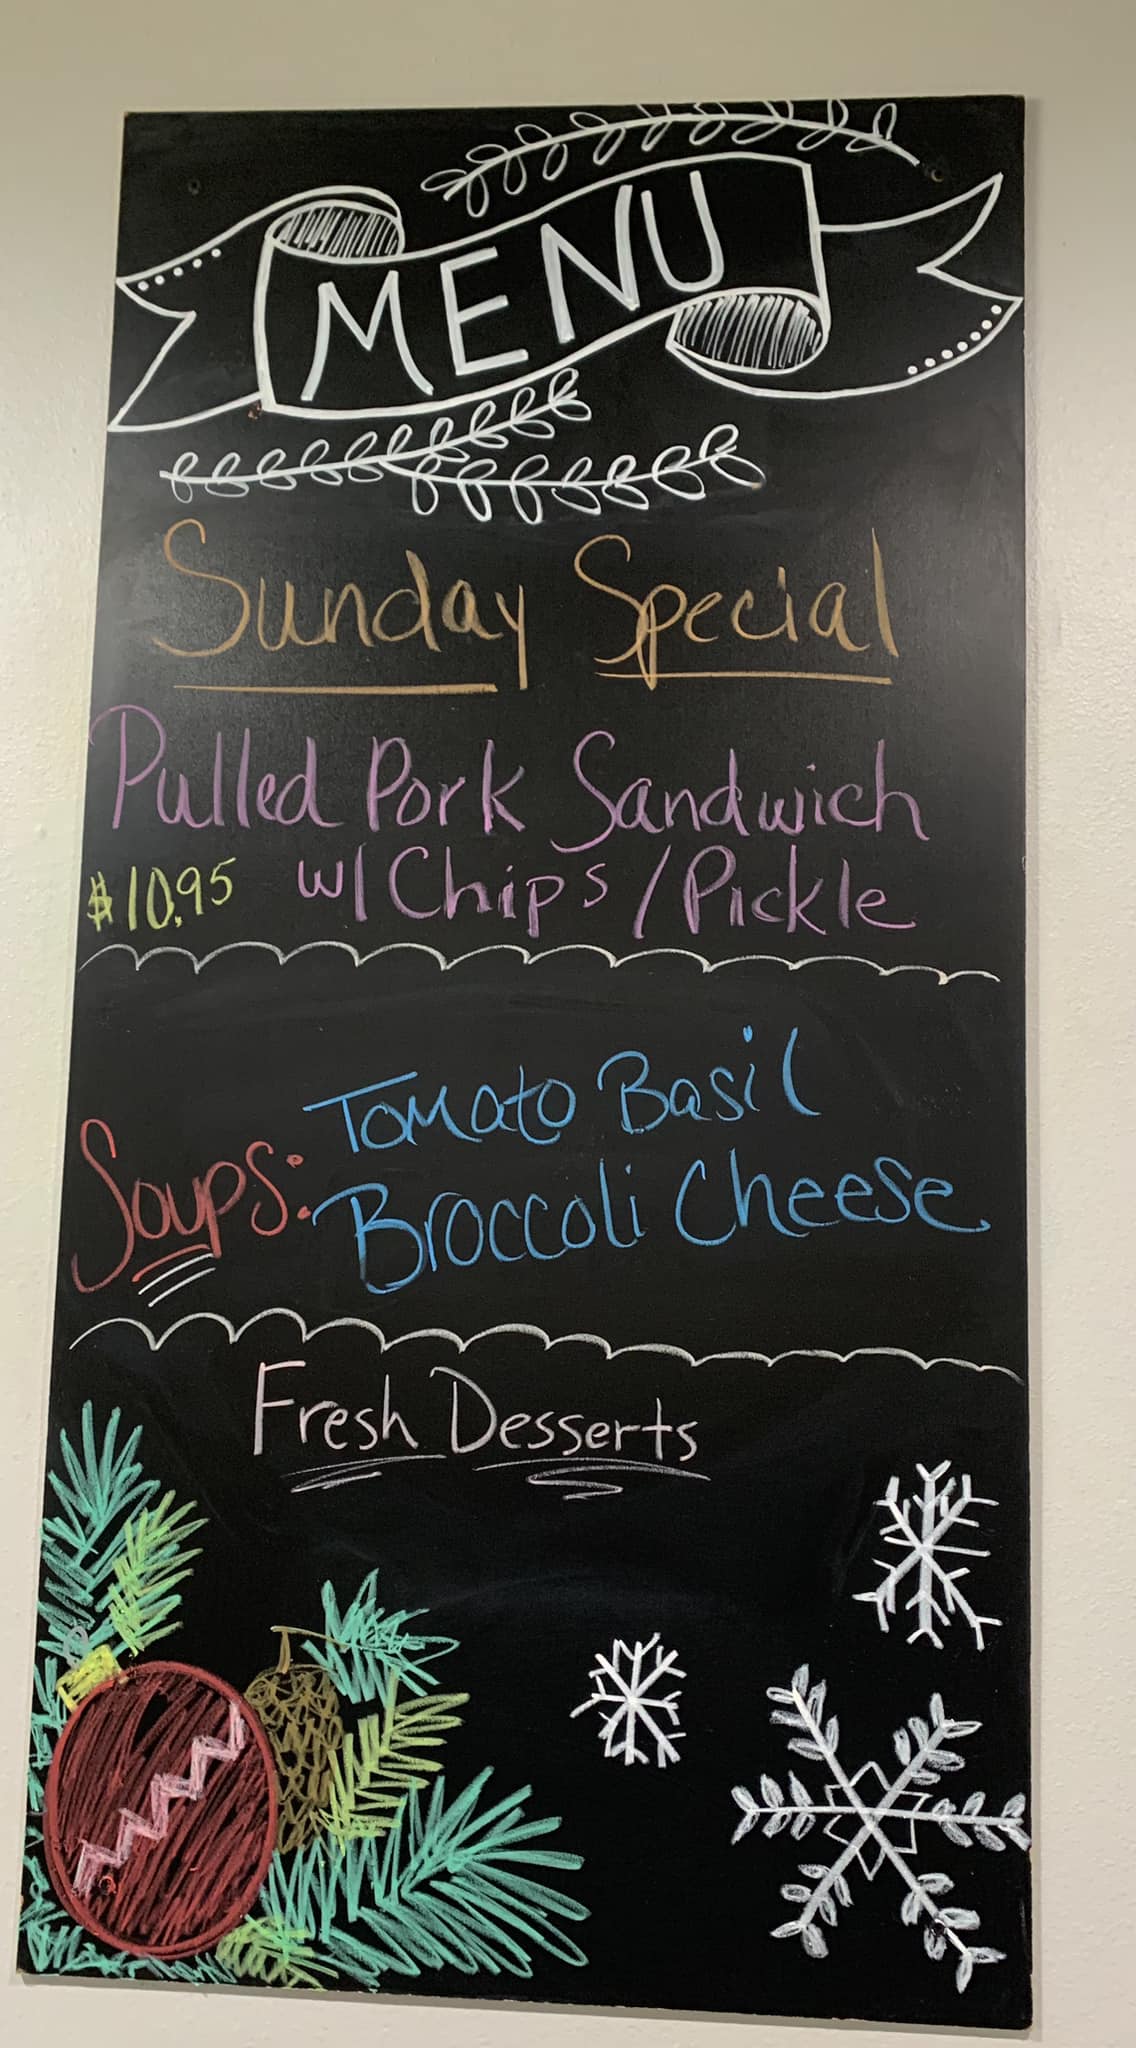 MENU
Sunday Special
Pulled Pork Sandwich
$10.95 w/ Chips / Pickle
Tomato Basil
Soups: Broccoli Cheese
Fresh Desserts